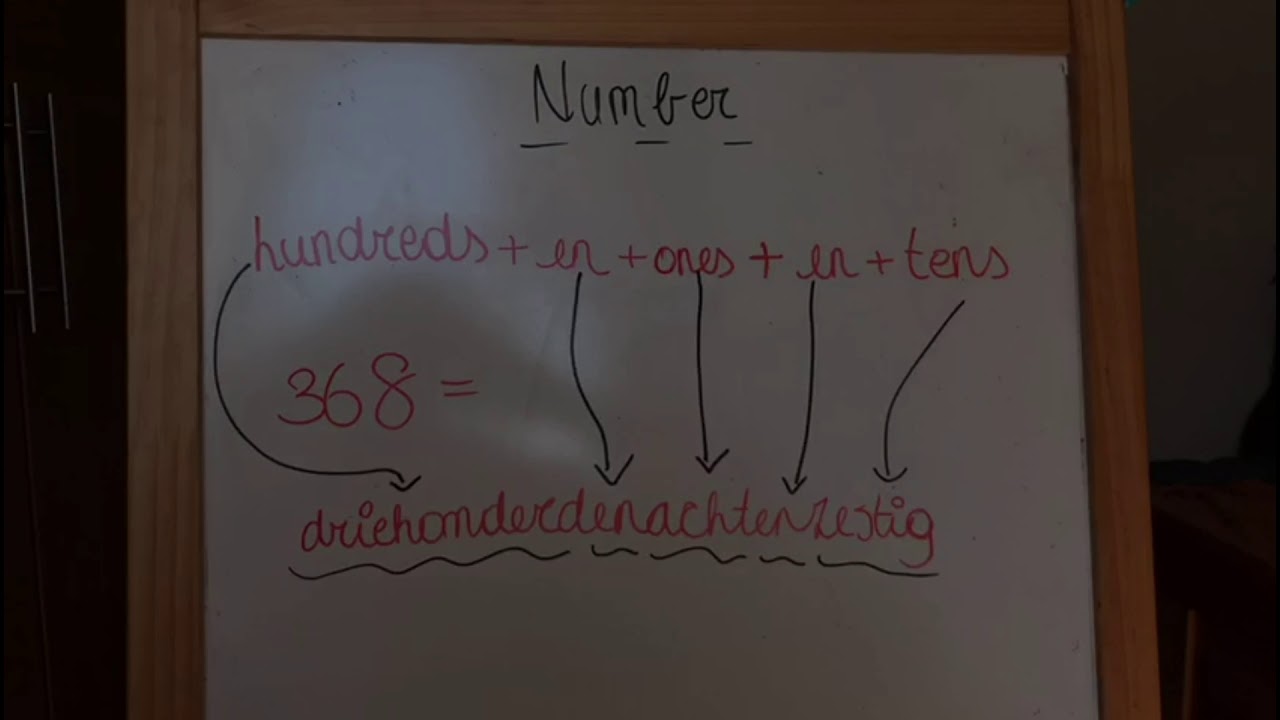 Number
hundreds + en + ones + en + tens
368 =
driehonderdenachtenzestig